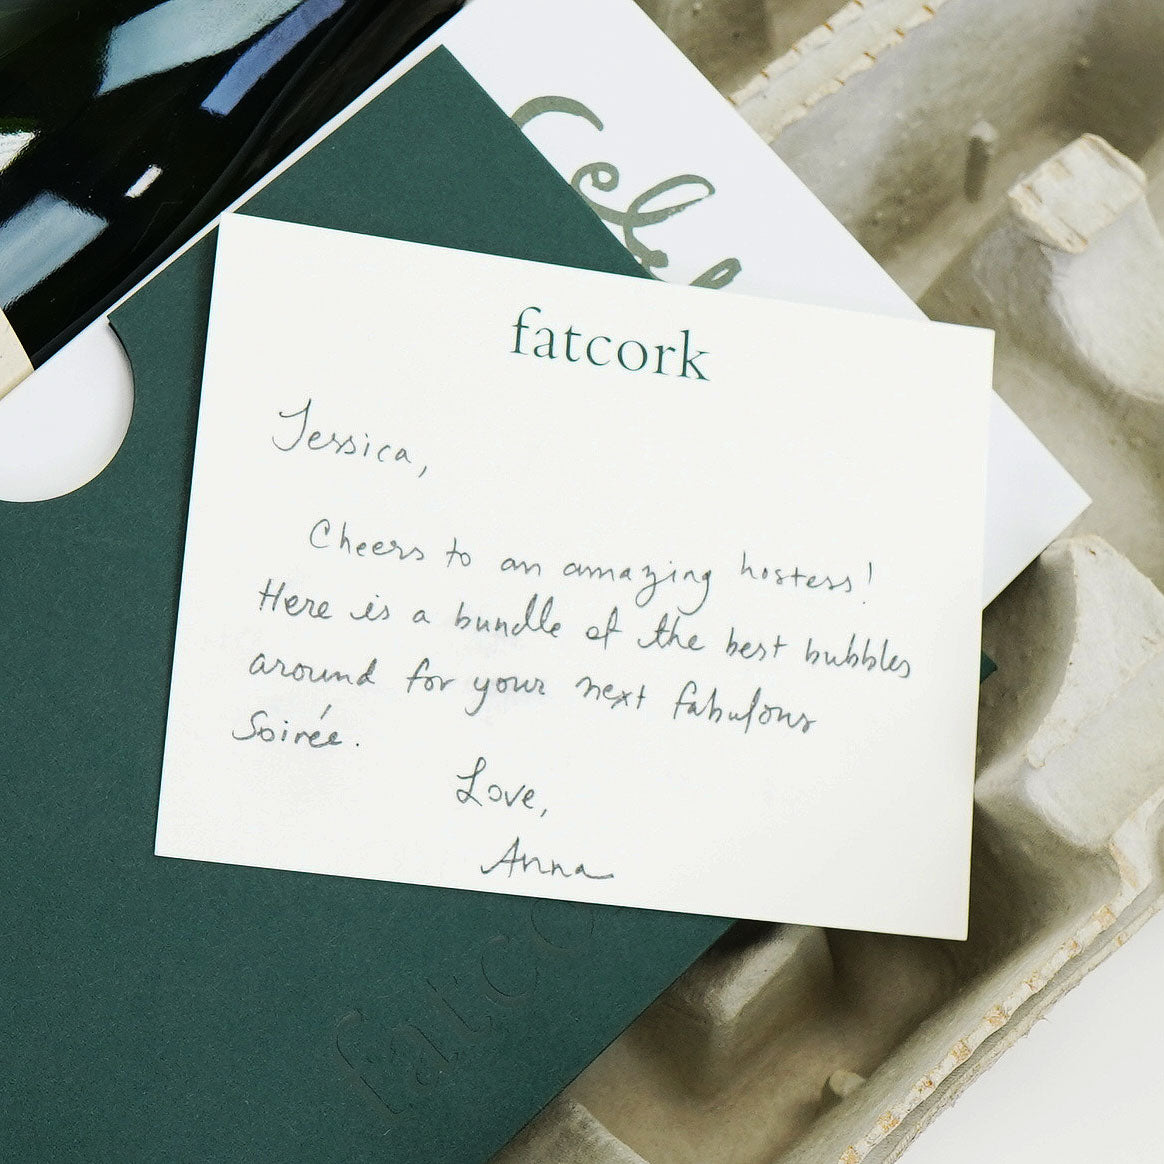 fatcork
Jessica,
Cheers to an amazing hostess!
Here is a bundle of the best bubbles
around for your next fabulous
Soirée.
Love,
Anna
fatco